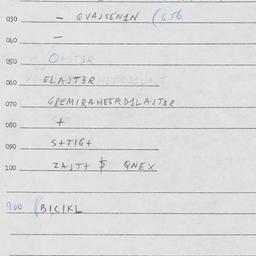 030 – QVAJSEN1N (656
040 –
050
060 ELAJT3R
070 GPEMIRAHESRD1LAJT3R
080 +
090 S+TIG+
100 ZAJT+ $ QNEX
900 (BICIKL